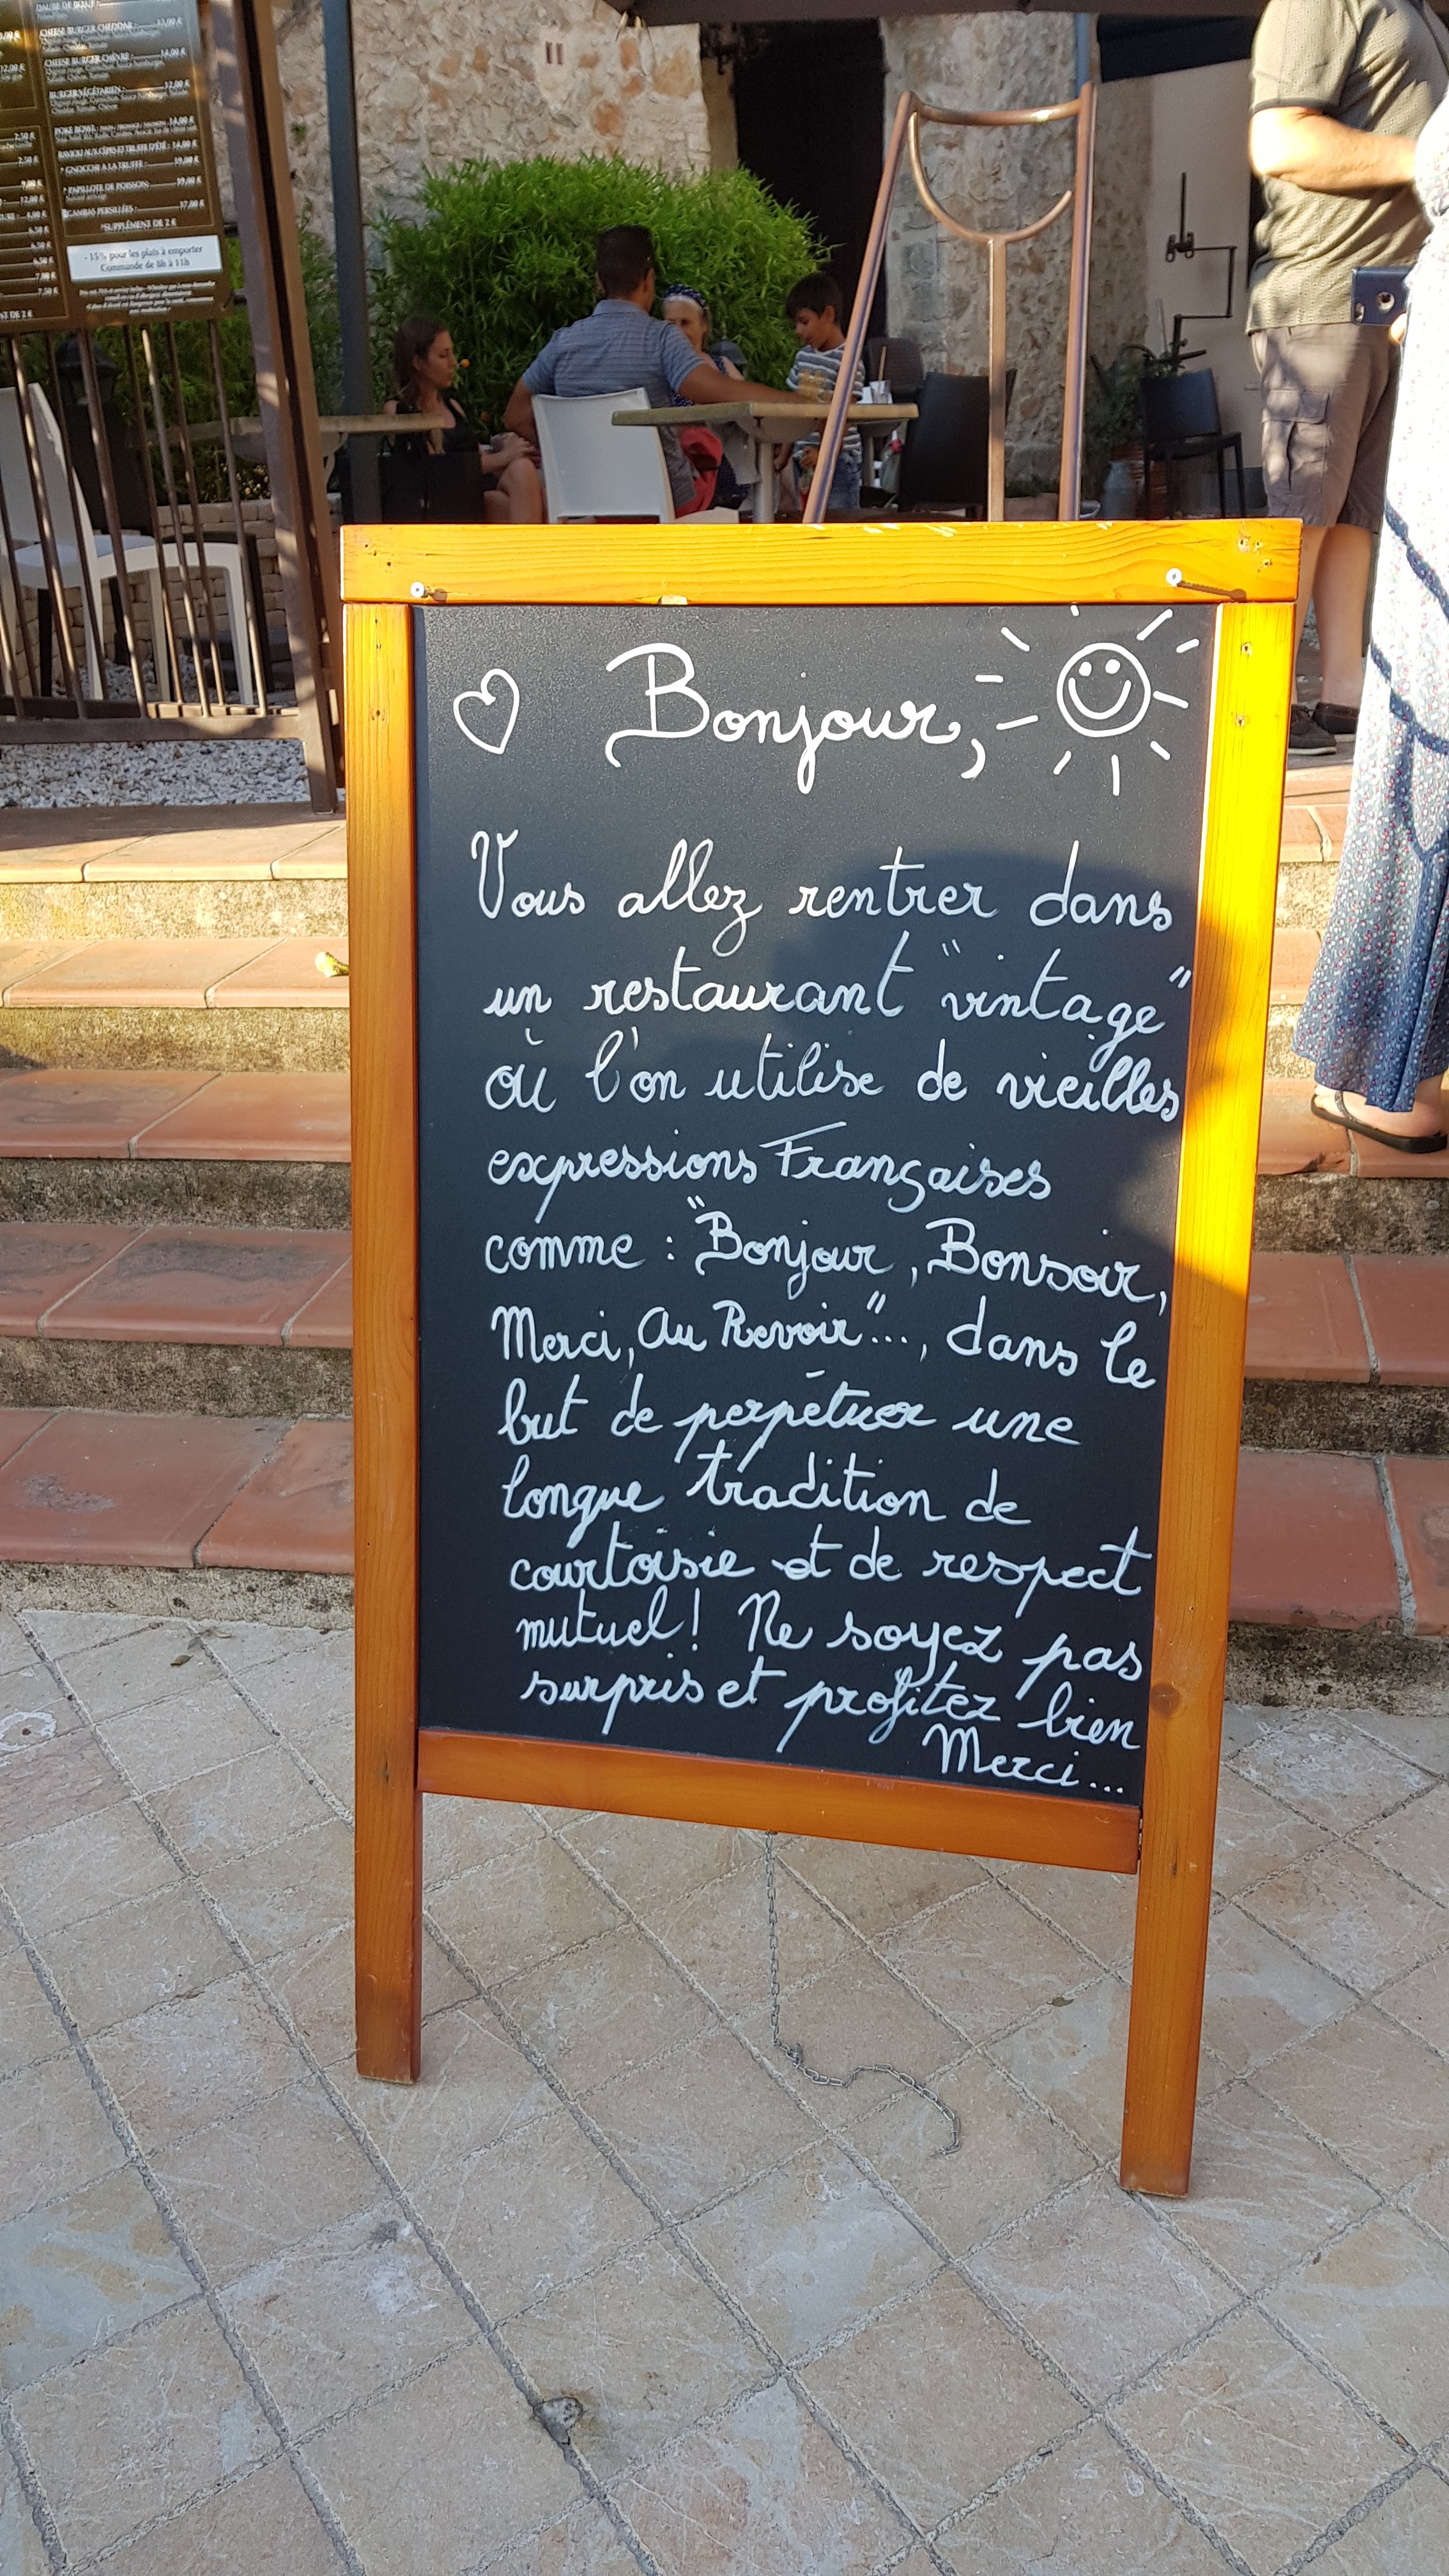 DAUBE DE BŒUF :
CHEESE BURGER CHEDDAR : 13,00 €
CHEESE BURGER CHÈVRE : 14,00 €
BURGER VÉGÉTARIEN : 12,00 €
POKE BOWL : 14,00 €
RAVIOLI AUX CÈPES ET TRUFFE D'ÉTÉ : 14,00 €
* GNOCCHI A LA TRUFFE : 19,00 €
* PAPILLOTE DE POISSON: 19,00 €
GAMBAS PERSILLÉES : 17,00 €
*SUPPLÉMENT DE 2 €
- 15% pour les plats à emporter
Commande de 8h à 11h
Bonjour,
Vous allez rentrer dans
un restaurant "vintage"
où l'on utilise de vieilles
expressions Françaises
comme : "Bonjour, Bonsoir,
Merci, Au Revoir"..., dans le
but de perpétuer une
longue tradition de
courtoisie et de respect
mutuel! Ne soyez pas
surpris et profitez bien
Merci...